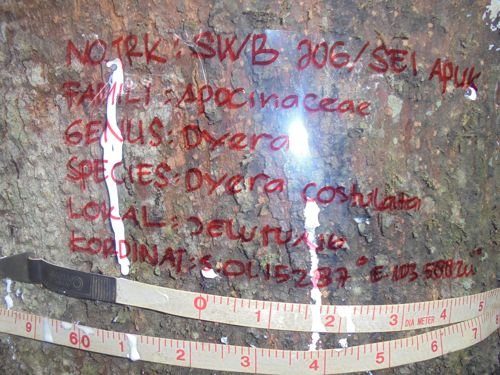 NO.TRK: SWB 206/SEI APUK
FAMILI: Apocinaceae
GENUS: Dyera
SPECIES: Dyera Costulata
LOKAL:
KORDINAT:
0 1 2 3 4 5
DIA METER
9 60 1 2 3 4 5 6 7